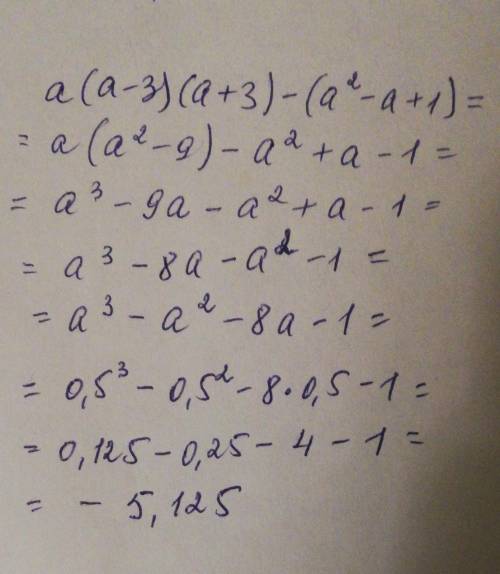 a(a-3)(a+3)-(a²-a+1)=
= a(a²-9)-a²+a-1=
= a³-9a-a²+a-1=
= a³-8a-a²-1=
= a³-a²-8a-1=
= 0,5³-0,5²-8·0,5-1=
= 0,125-0,25-4-1=
= -5,125